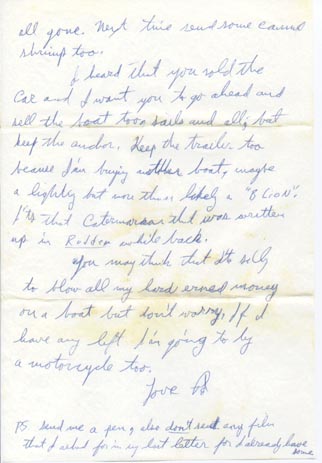 all gone. Next time send some canned
shrimp too.
I heard that you sold the
Car and I want you to go ahead and
sell the boat too sails and all, but
keep the anchor. Keep the trailer too
because I'm buying another boat, maybe
a lighting but more than likely a "B LION".
that Catermaran that was written
up in while back.
You may think that it's silly
to blow all my hard erned money
on a boat but don't worry, If I
have any left I'm going to by
a motorcycle too.
Love
PS. Send me a pen, also don't send any film
that I asked for in my last letter for I already have
some